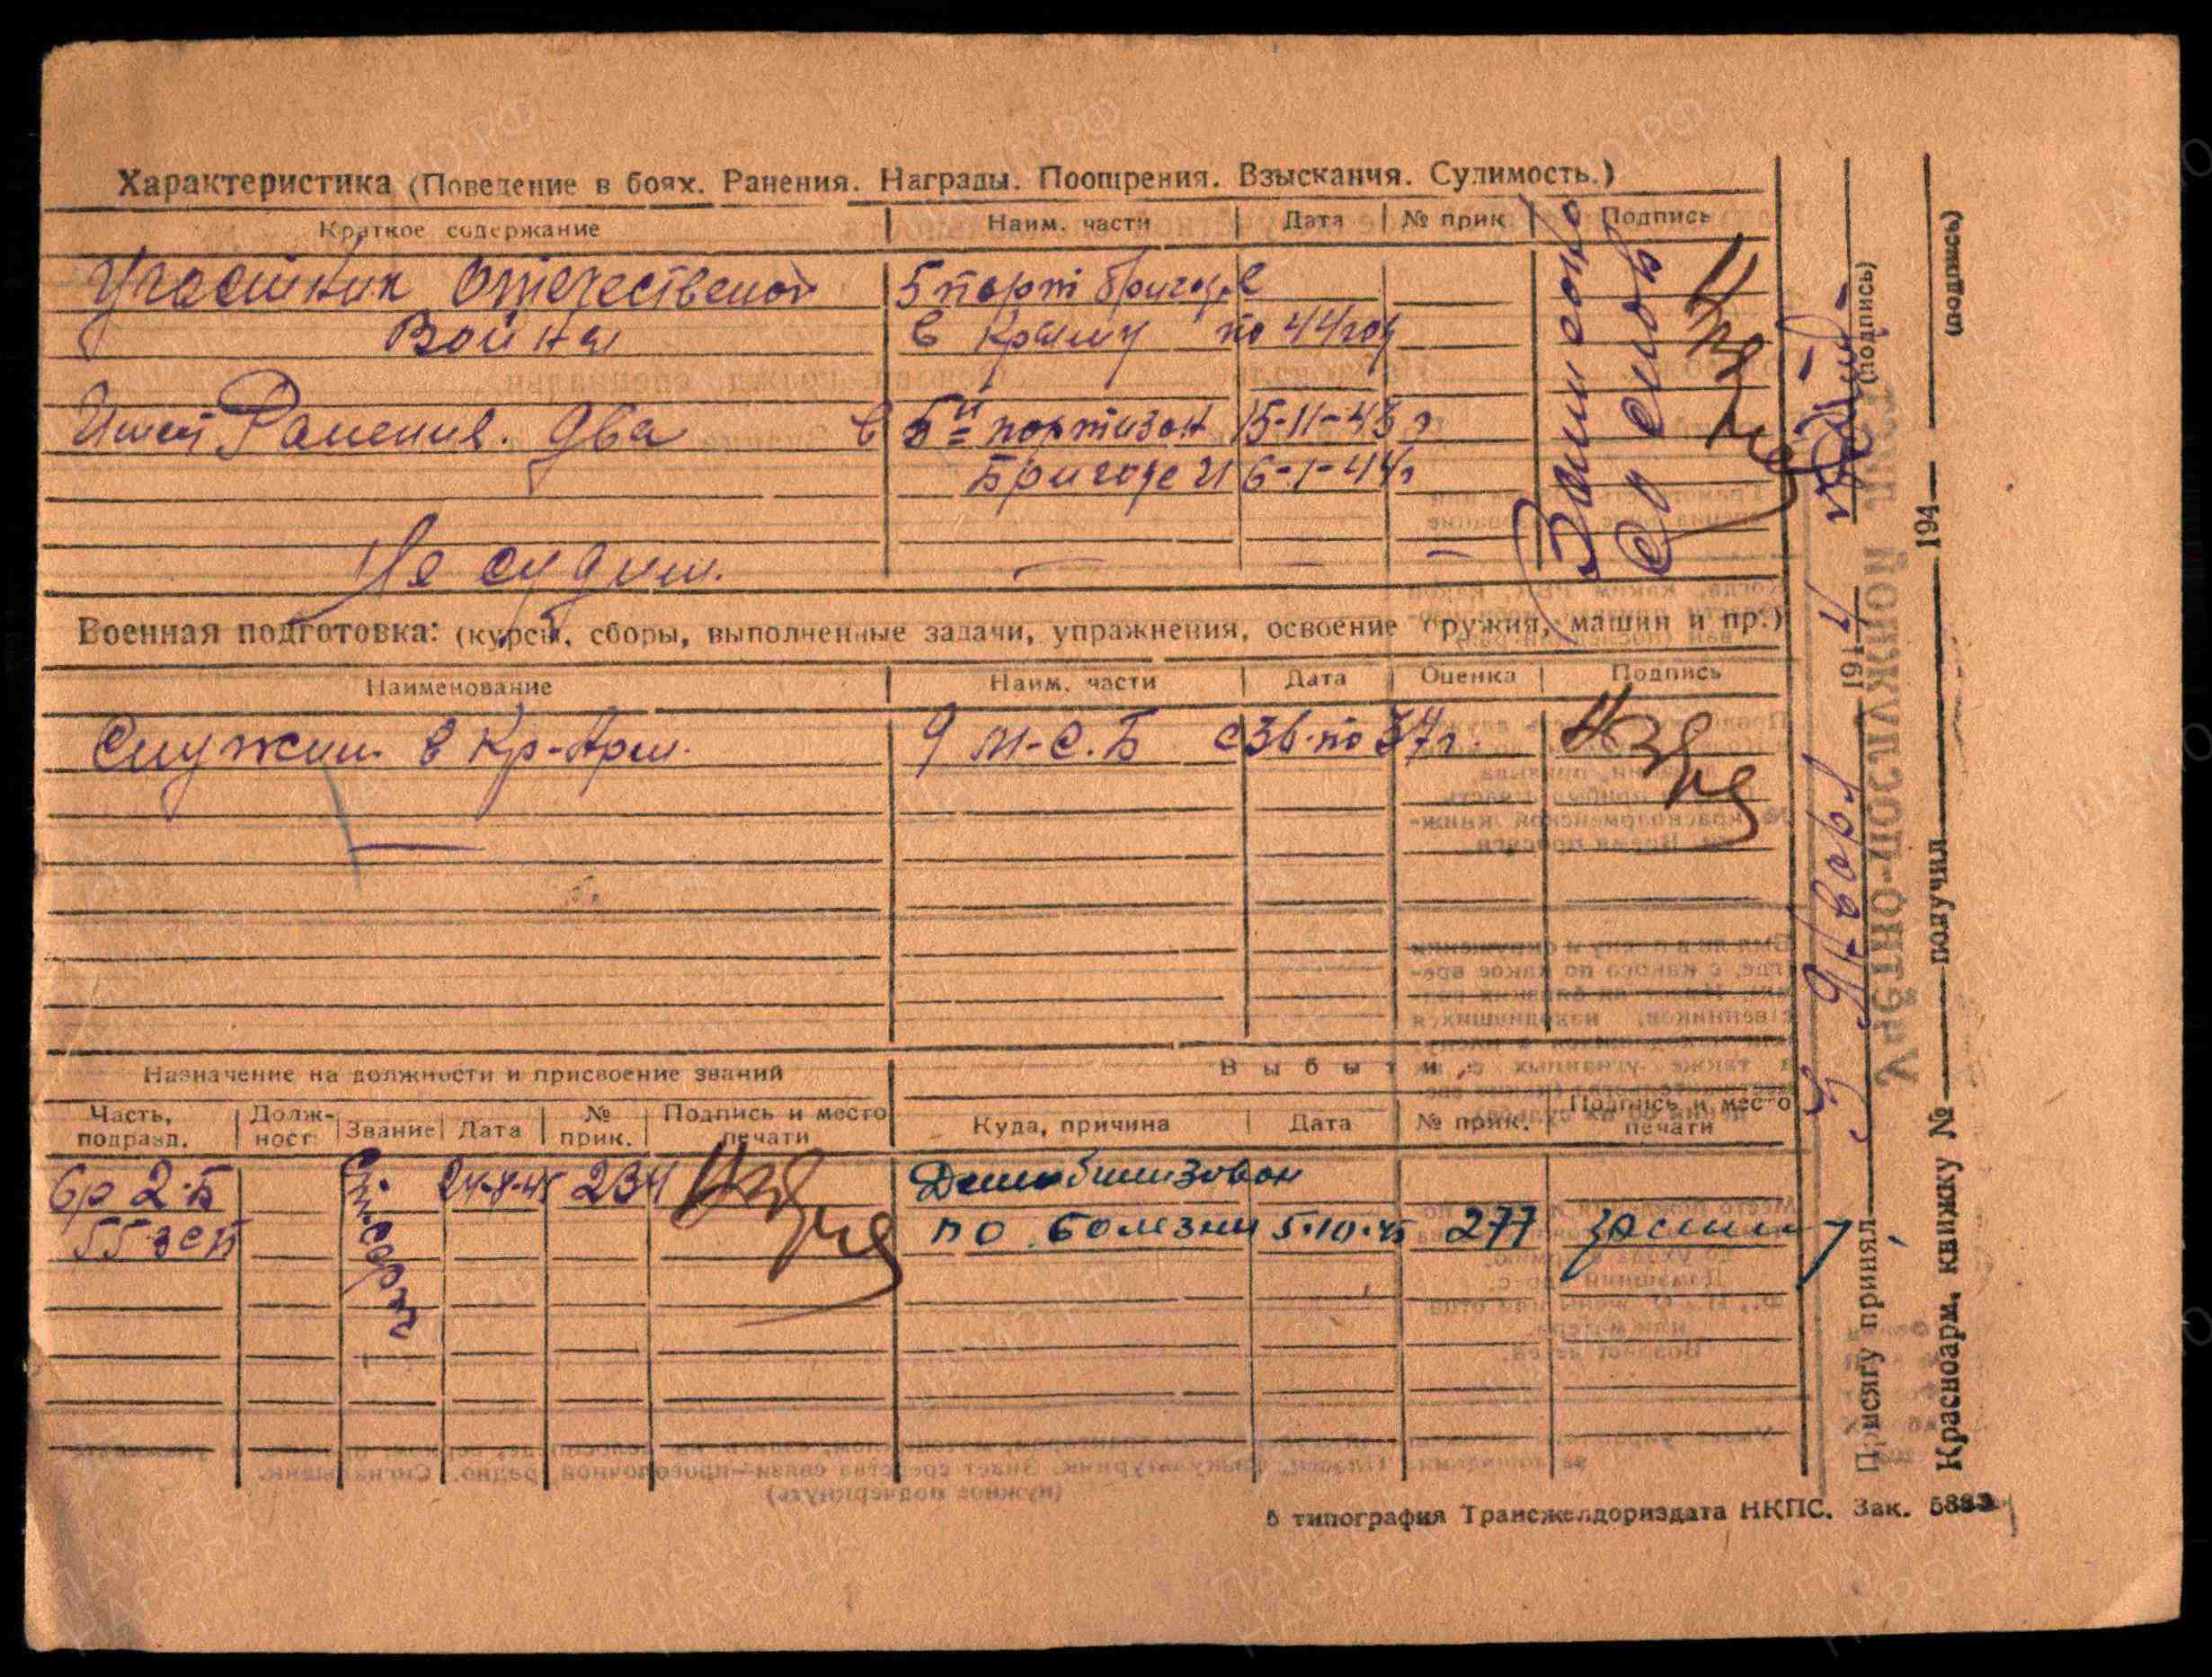 Характеристика (Поведение в боях. Ранения. Награды. Поощрения. Взыскания. Судимость.)
Краткое содержание Наим. части Дата № прик. Подпись
Участник Отечественой 5 парт бригаде
Войны в Крыму по 44 год
Имеет Ранения. Два в 5й партизан 15-11-43 г
Бригаде и 6-1-44г
Не судим.
Записано
Со слов
Военная подготовка: (курсы, сборы, выполненные задачи, упражнения, освоение оружия, машин и пр.)
Наименование Наим. части Дата Оценка Подпись
Служил в Кр-Арм. 9 м-с.Б с 36 по 37г.
Назначение на должности и присвоение званий
Выбытие
Часть, подразд. Должност. Звание Дата № прик. Подпись и место печати Куда, причина Дата № прик. Подпись и место печати
6р 2-Б 24-8-45 234 Демобилизован
55 зсп по болезни 5.10.45 277
5 типография Трансжелдориздата НКПС. Зак.
Присягу принял 5 194 (подпись)
Красноарм. книжку № получил 194 (подпись)